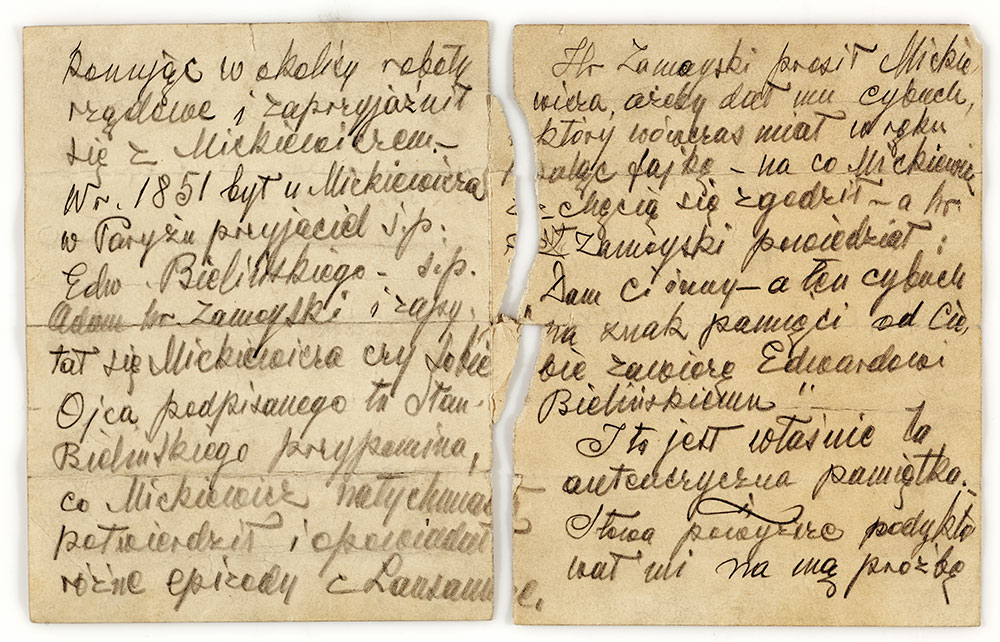 konując w okolicy roboty
rządowe i zaprzyjaźnił
się z Mickiewiczem.-
W r. 1851 był u Mickiewicza
w Paryżu przyjaciel ś.p.
Edw. Bielińskiego - ś.p.
Adam hr Zamoyski i zapy-
tał się Mickiewicza czy sobie
Ojca podpisanego tu Stan.
Bielińskiego przypomina,
co Mickiewicz natychmiast
potwierdził i opowiadał
różne epizody z Lausanne.
Hr Zamoyski prosił Mickie-
wicza, ażeby dał mu cybuch,
który wówczas miał w ręku
paląc fajkę - na co Mickiewicz
z chęcią się zgodził - a hr.
Zamoyski powiedział:
"Dam ci inny - a ten cybuch
na znak pamięci od Cie-
bie zawiozę Edwardowi
Bielińskiemu"
I to jest właśnie ta
autentyczna pamiątka.
Słowa powyższe podykto
wał mi na mą prośbę